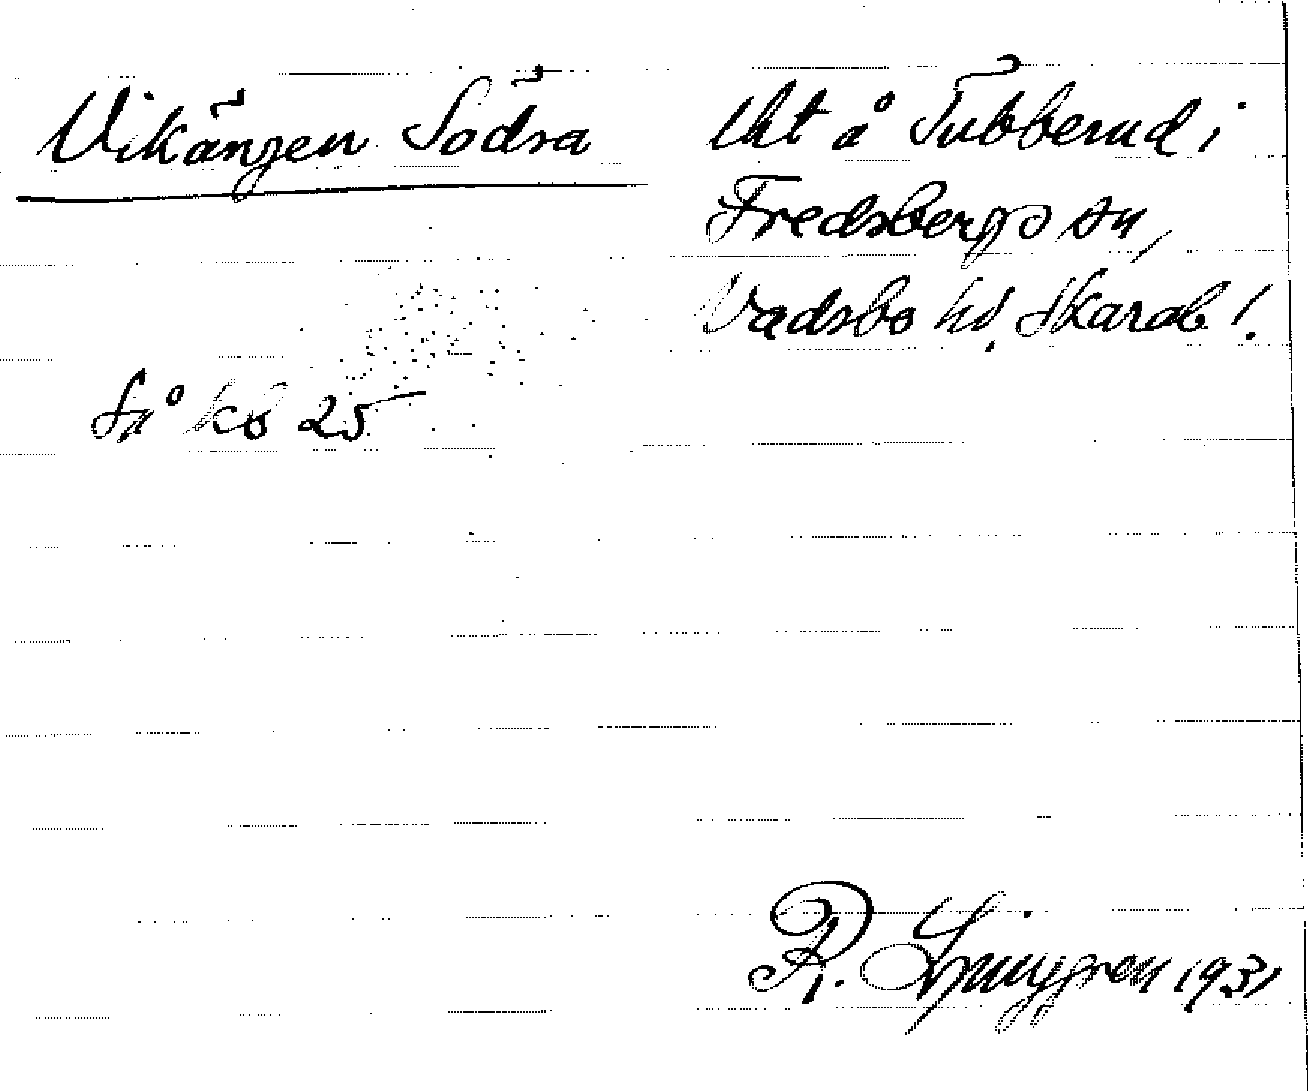 Vikängen Södra
Uht å Tubberud i
Fredsbergs sn,
Vadsbo hd, Skarab l.
Enl kb 25
R. Ljunggren 1931